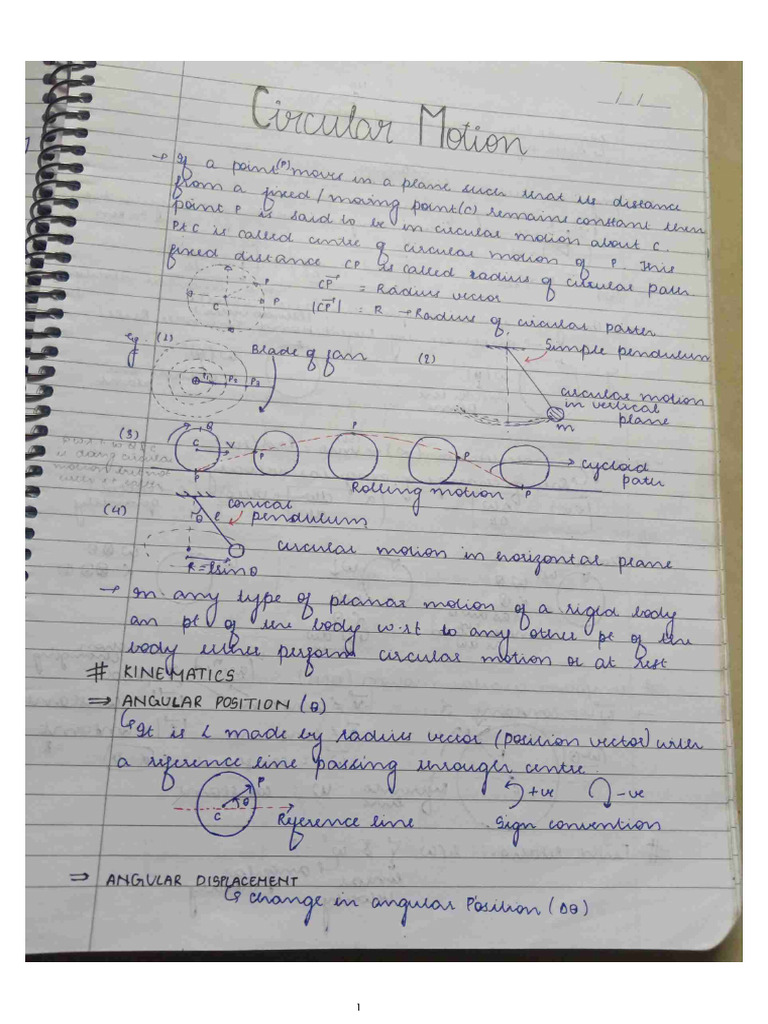 Circular Motion
/ /
→ If a point(P) moves in a plane such that its distance
from a fixed/moving point(C) remains constant then
point P is said to be in circular motion about C.
Pt C is called centre of circular motion of P. This
fixed distance CP is called radius of circular path
P
P
C
CP = Radius vector
|CP| = R → Radius of circular path
eg. (1)
Blade of fan
P1 P2 P3
(2)
Simple pendulum
circular motion
in vertical
plane
m
(3)
Q
C
V
P
P
P
P
P
cycloid
path
Rolling motion
(4)
θ
l
conical
pendulum
R = lsinθ
circular motion in horizontal plane
→ In any type of planar motion of a rigid body
an pt of the body w.r.t to any other pt of the
body either perform circular motion or at rest
# KINEMATICS
⇒ ANGULAR POSITION (θ)
↳ It is ∠ made by radius vector (position vector) with
a reference line passing through centre
P
θ
C
Reference line
+ve
-ve
Sign convention
⇒ ANGULAR DISPLACEMENT
↳ change in angular Position (Δθ)
1